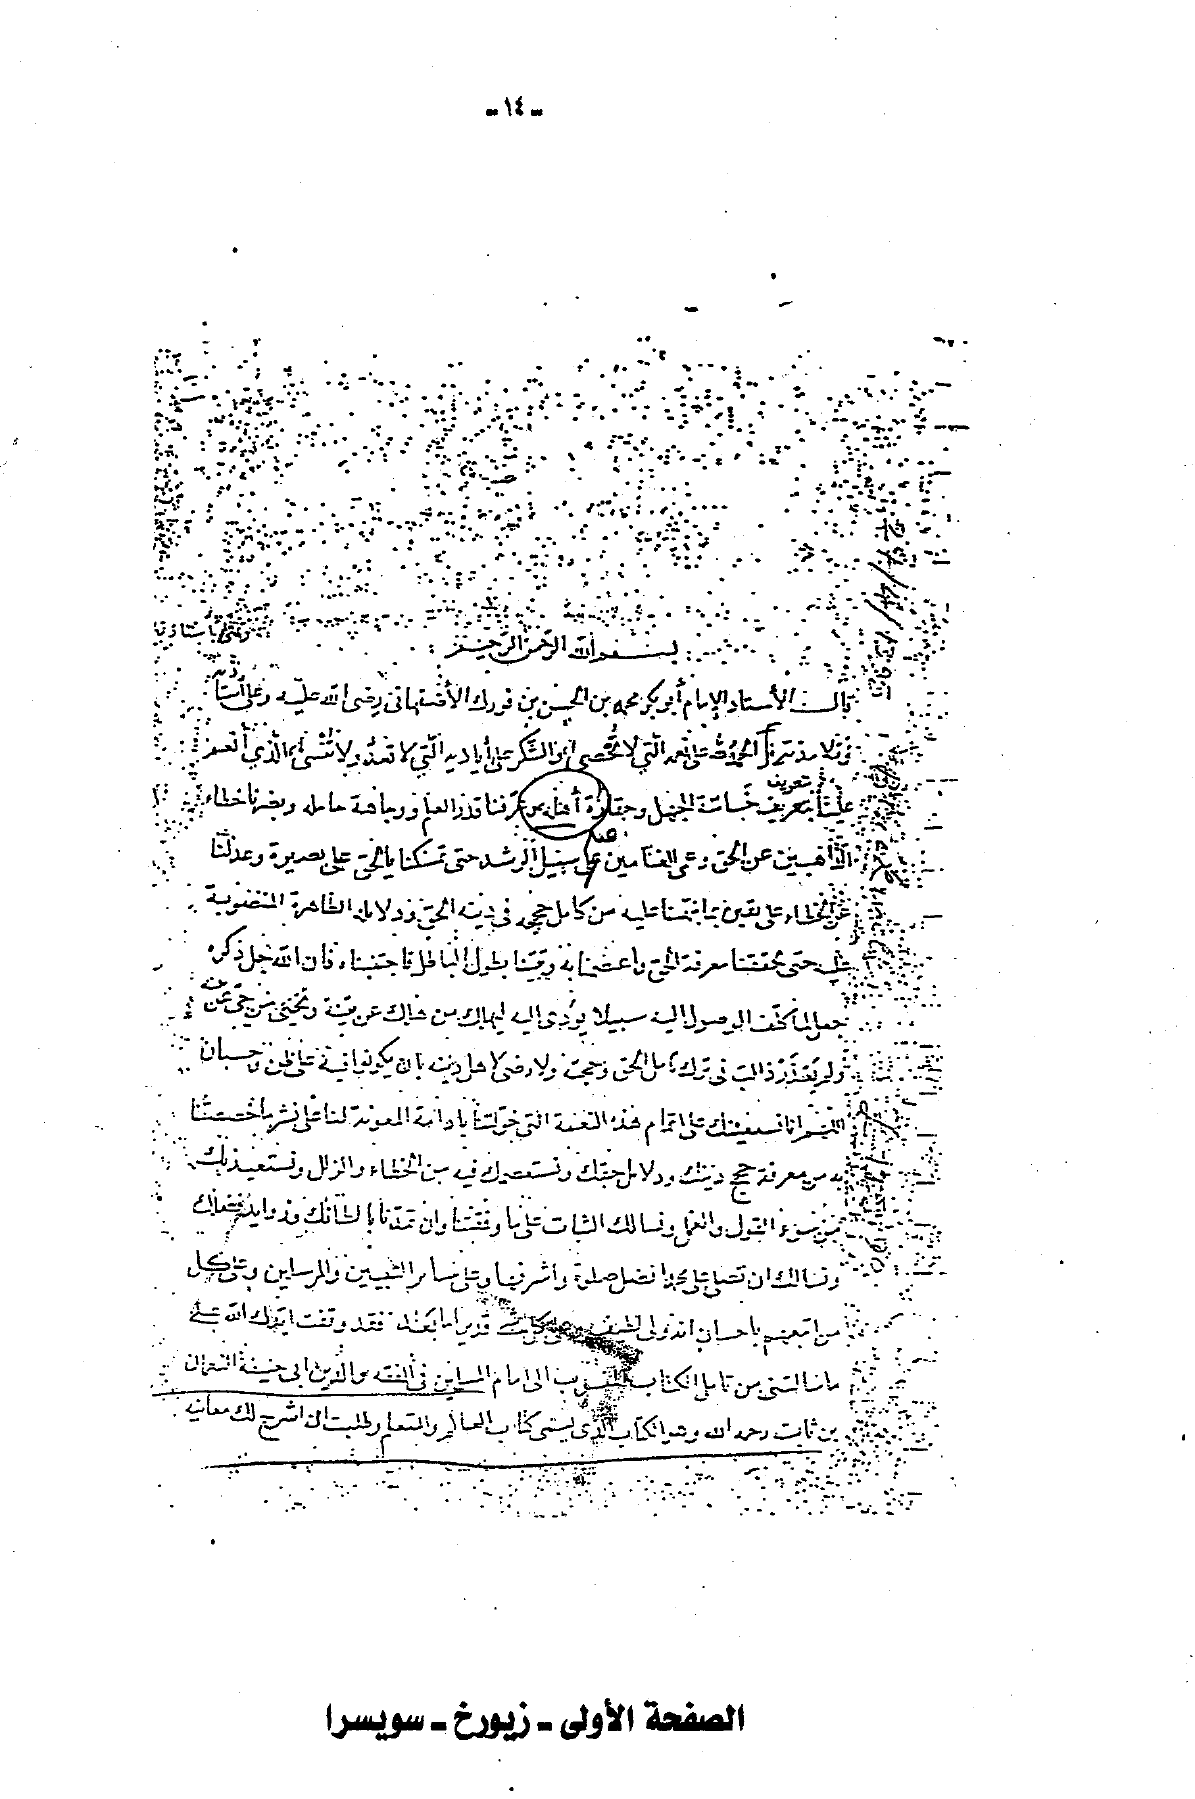 - ١٤ -
بسم الله الرحمن الرحيم
قال الأستاذ الإمام أبو بكر محمد بن الحسن بن فورك الأصبهاني رضي الله عليه وعلى
الحمد لله على نعمه التي لا تحصى والشكر على أياديه التي لا تعد ولا تنسى الذي أنعم
علينا بتعريف خساسة الجهل وحقارة أهله عرفنا قدر العلم ووجاهة حامله وبصرنا خطاء
تعريف
الذاهبين عن الحق وعمى العامين على سبيل الرشد حتى تمسكنا بالحق على بصيرة وعدلنا
عن الخطاء على يقين من كامل حججه في دينه الحق ودلايله الظاهرة المنصوبة
عليه حتى تحققنا معرفة الحق واعتصمنا به وتبينا بطول الباطل فاجتنبناه فان الله جل ذكره
جعل لما كلف الوصول اليه سبيلا يؤدي اليه ليهلك من هلك عن بينة ويحيى من حي عن
ولم يعذر ذالك في ترك تأمل الحق وحججه ولا رضي لاهل دينه بان يكونوا فيه على ظن وحسبان
اللهم انا نستعينك على اتمام هذه النعمة التي خولتنا بادامة المعونة لنا على نشر ما خصصتنا
به من معرفة حجج دينك ودلايل حقك ونستعصمك فيه من الخطاء والزلل ونستعيذ بك
من سوء القول والعمل ونسالك الثبات على ما وفقتنا وان تمدنا بالطافك وزوايد
ونسالك ان تصلي على محمد افضل صلوة واشرفها وعلى ساير النبيين والمرسلين وعلى كل
من اتبعهم باحسان انه ولي لطيف وعلى كل شئ قدير اما بعد فقد وقفت ايدك الله على
ما سالتني من تامل الكتاب المنسوب الى امام المسلمين في الفقه والدين ابي حنيفة النعمان
بن ثابت رحمه الله وهو الكتاب الذي يسمى كتاب العالم والمتعلم وطلبت ان اشرح لك معانيه
الصفحة الأولى - زيورخ - سويسرا